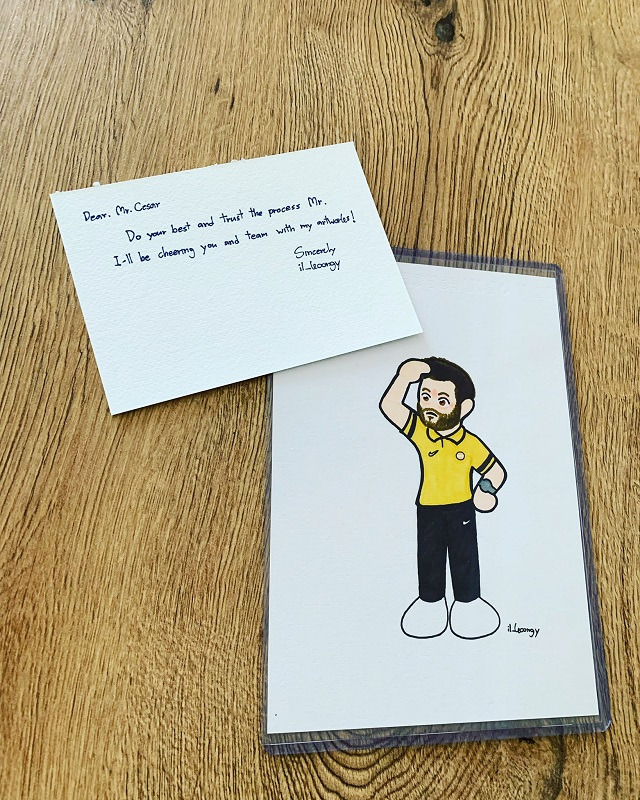 Dear. Mr. Cesar
Do your best and trust the process Mr.
I-ll be cheering you and team with my artworks!
Sincerely
il_leoongy
il_leoongy